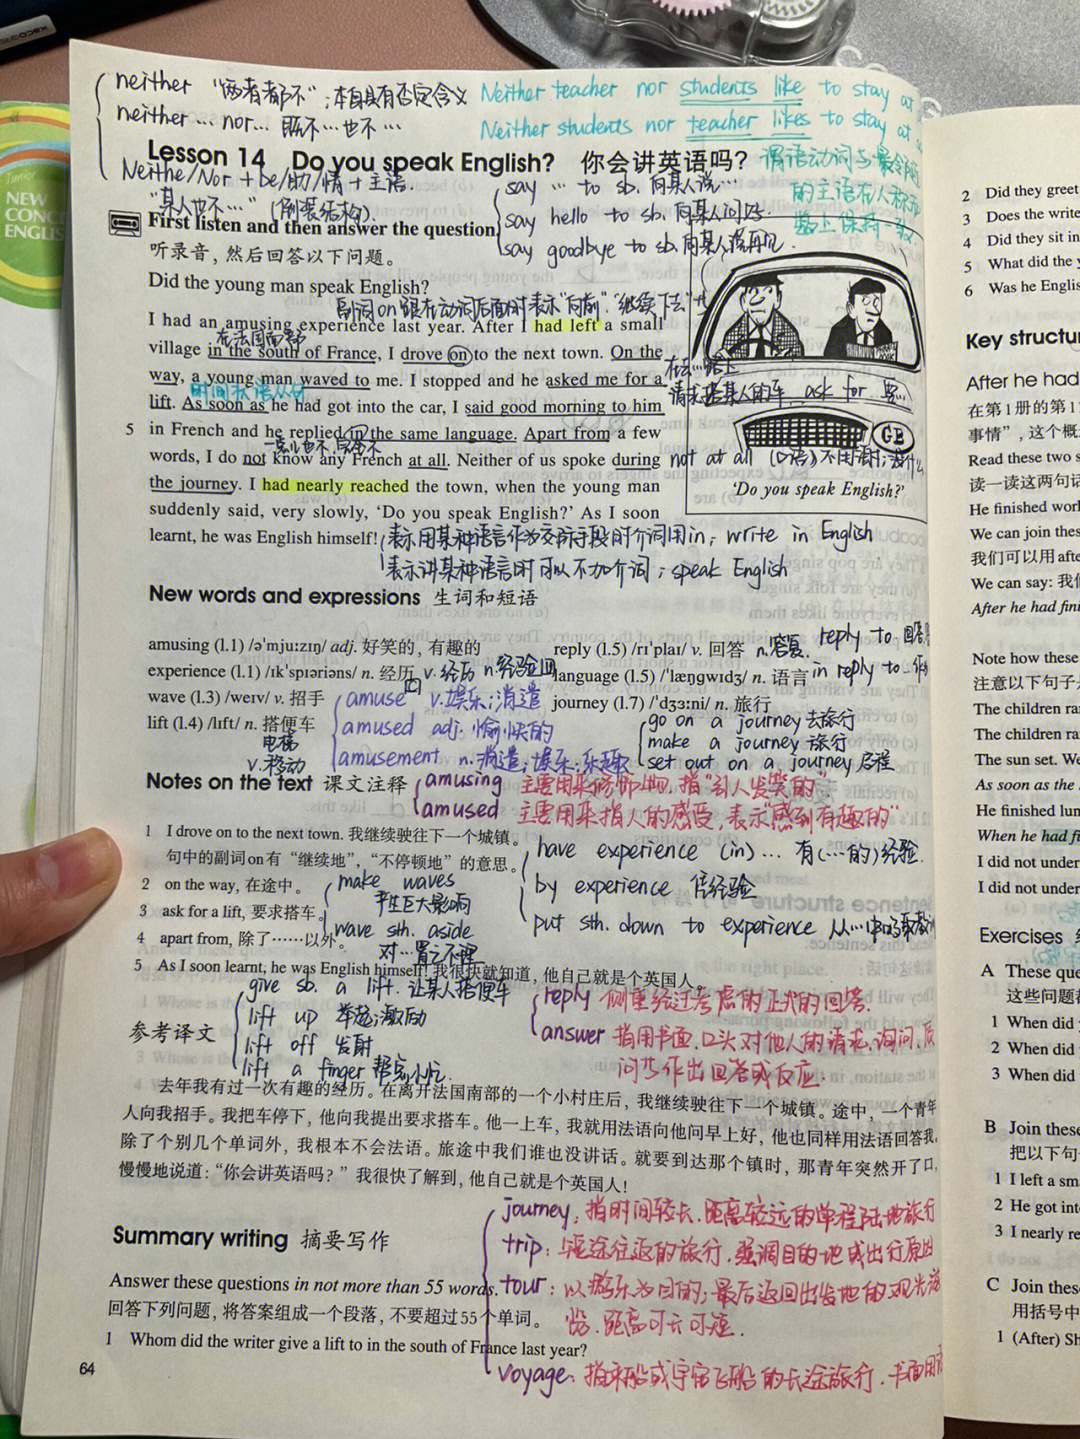 neither "两者都不"；本身具有否定含义
neither … nor … 既不…也不…
Neither teacher nor students like to stay at
Neither students nor teacher likes to stay at
Lesson 14 Do you speak English? 你会讲英语吗？
谓语动词与最邻近
的主语在人称和
数上保持一致.
Neithe/Nor + be/助/情 + 主语.
"某人也不…" (倒装结构).
say … to sb. 向某人说…
say hello to sb. 向某人问好.
say goodbye to sb. 向某人说再见.
First listen and then answer the question.
听录音，然后回答以下问题。
Did the young man speak English?
副词on跟在动词后面时表示"向前","继续下去"
I had an amusing experience last year. After I had left a small
在法国南部
village in the south of France, I drove on to the next town. On the
在去…路上
way, a young man waved to me. I stopped and he asked me for a
时间状语从句
请求搭某人的车. ask for 要…
lift. As soon as he had got into the car, I said good morning to him
5 in French and he replied in the same language. Apart from a few
一点儿也不,完全不
words, I do not know any French at all. Neither of us spoke during
not at all (口语) 不用谢；没什么
the journey. I had nearly reached the town, when the young man
suddenly said, very slowly, ‘Do you speak English?’ As I soon
learnt, he was English himself!
GB
‘Do you speak English?’
表示用某种语言作为交际手段时介词用in; write in English
表示讲某种语言时可以不加介词；speak English
New words and expressions 生词和短语
amusing (l.1) /ə'mju:zɪŋ/ adj. 好笑的, 有趣的
experience (l.1) /ɪk'spɪəriəns/ n. 经历 v.经历 n.经验
wave (l.3) /weɪv/ v. 招手
lift (l.4) /lɪft/ n. 搭便车
电梯
v.移动
reply (l.5) /rɪ'plaɪ/ v. 回答 n.答复. reply to
language (l.5) /'læŋgwɪdʒ/ n. 语言 in reply to
journey (l.7) /'dʒɜ:ni/ n. 旅行
amuse v.娱乐；消遣
amused adj. 愉快的
amusement n. 消遣；娱乐；乐趣
go on a journey 去旅行
make a journey 旅行
set out on a journey 启程
Notes on the text 课文注释
amusing 主要用来修饰物,指"引人发笑的".
amused 主要用来指人的感受,表示"感到有趣的"
1 I drove on to the next town. 我继续驶往下一个城镇。
句中的副词on有“继续地”，“不停顿地”的意思。
2 on the way, 在途中。
3 ask for a lift, 要求搭车。
4 apart from, 除了……以外。
5 As I soon learnt, he was English himself! 我很快就知道，他自己就是个英国人。
make waves
产生巨大影响
wave sth. aside
对…置之不理
have experience (in) … 有(…的)经验.
by experience 凭经验
put sth. down to experience 从…中吸取教
give sb. a lift. 让某人搭便车
lift up 举起；激励
lift off 发射
lift a finger 帮点小忙.
reply 侧重经过考虑的正式的回答.
answer 指用书面、口头对他人的请求、询问、质
问等作出回答或反应.
参考译文
去年我有过一次有趣的经历。在离开法国南部的一个小村庄后，我继续驶往下一个城镇。途中，一个青年
人向我招手。我把车停下，他向我提出要求搭车。他一上车，我就用法语向他问早上好，他也同样用法语回答我。
除了个别几个单词外，我根本不会法语。旅途中我们谁也没讲话。就要到达那个镇时，那青年突然开了口，
慢慢地说道：“你会讲英语吗？”我很快了解到，他自己就是个英国人！
journey: 指时间较长、距离较远的单程陆地旅行
trip: 短途往返的旅行. 强调目的地或出行原因
tour: 以游乐为目的; 最后返回出发地的观光游
览. 距离可长可短.
voyage: 指乘船或宇宙飞船的长途旅行. 书面用
Summary writing 摘要写作
Answer these questions in not more than 55 words.
回答下列问题，将答案组成一个段落，不要超过55个单词。
1 Whom did the writer give a lift to in the south of France last year?
64
Junior
NEW
CONC
ENGLIS
2 Did they greet
3 Does the write
4 Did they sit in
5 What did the y
6 Was he Englis
Key structur
After he had
在第1册的第1
事情”，这个概
Read these two s
读一读这两句话
He finished work
We can join thes
我们可以用afte
We can say: 我们
After he had fini
Note how these
注意以下句子
The children ra
The children ra
The sun set. We
As soon as the
He finished lun
When he had fi
I did not under
I did not under
Exercises
A These que
这些问题
1 When did
2 When did
3 When did
B Join these
把以下句
1 I left a sm
2 He got int
3 I nearly re
C Join thes
用括号中
1 (After) Sh